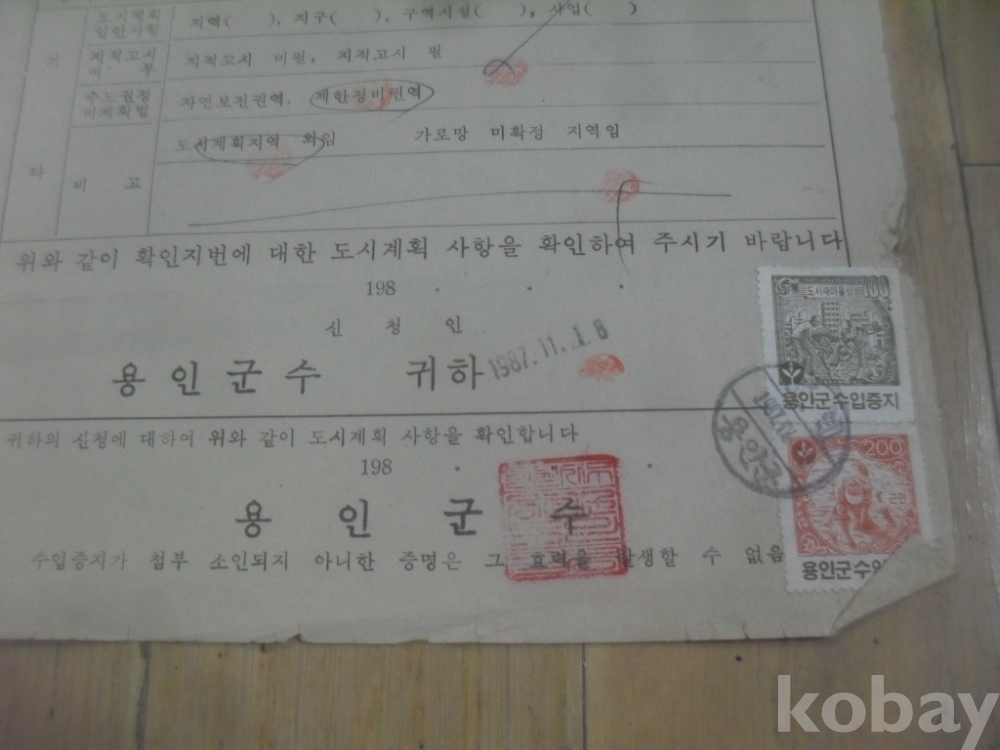 도시계획
입안사항
지역( ), 지구( ), 구역시설( ), 사업( )
지적고시
여 부
지적고시 미필, 지적고시 필
수도권정
비계획법
자연보전권역, 제한정비권역
도시계획지역 외임 가로망 미확정 지역임
기
타
비 고
위와 같이 확인지번에 대한 도시계획 사항을 확인하여 주시기 바랍니다
198 . . .
신 청 인
용인군수 귀하
1987.11.18
귀하의 신청에 대하여 위와 같이 도시계획 사항을 확인합니다
198 . . .
용 인 군 수
수입증지가 첨부 소인되지 아니한 증명은 그 효력을 발생할 수 없음
도시새마을상
100
용인군수입증지
용인군
200
용인군수입
kobay